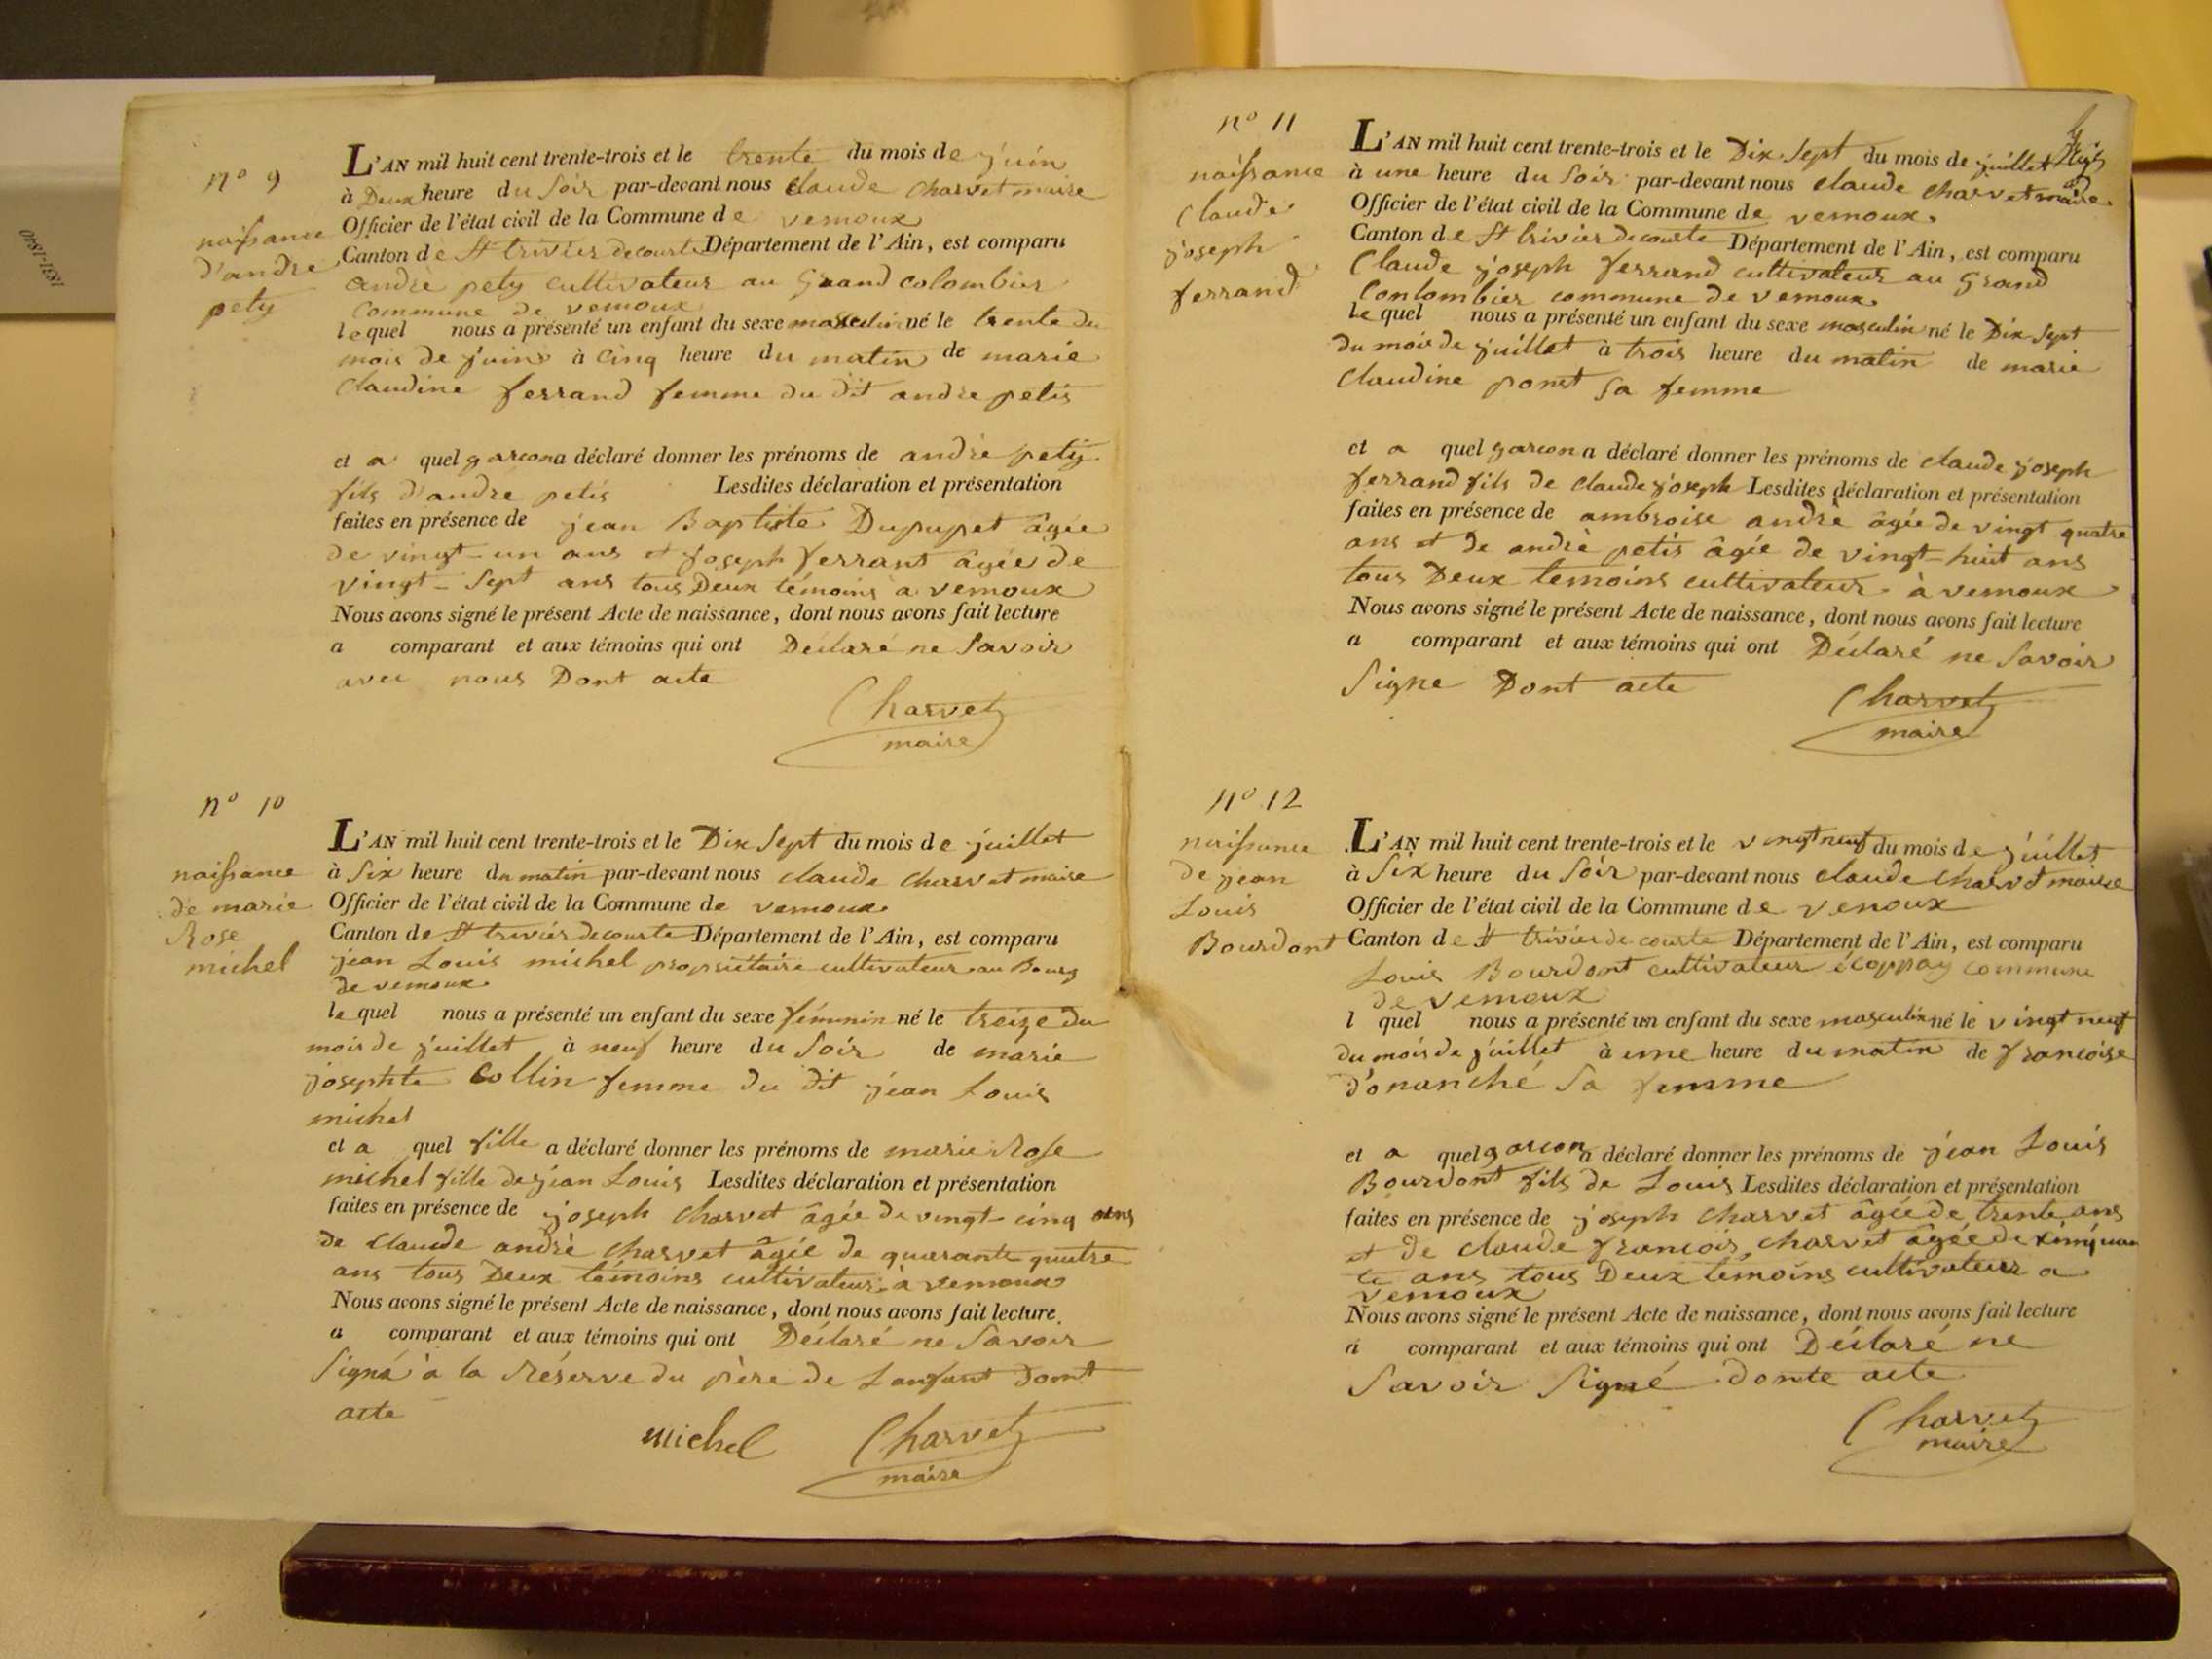 1831-1840
nº 9
naissance
d'andre
pety
L'AN mil huit cent trente-trois et le trente du mois de juin
à Deux heure du soir par-devant nous claude charvet maire
Officier de l'état civil de la Commune de vernoux
Canton de St trivier decourte Département de l'Ain, est comparu
andrè pety cultivateur au Grand colombier
commune de vernoux
lequel nous a présenté un enfant du sexe masculin né le trente du
mois de juin à cinq heure du matin de marie
claudine ferrand femme du dit andre petis
et a quel garcon a déclaré donner les prénoms de andrè pety
fils d'andre petis Lesdites déclaration et présentation
faites en présence de jean Baptiste Dupupet âgée
de vingt-un ans et joseph ferrant âgée de
vingt-sept ans tous Deux témoins a vernoux
Nous avons signé le présent Acte de naissance, dont nous avons fait lecture
a comparant et aux témoins qui ont Déclaré ne savoir
avec nous Dont acte
Charvet
maire
nº 10
naissance
de marie
Rose
michel
L'AN mil huit cent trente-trois et le Dix sept du mois de juillet
à six heure du matin par-devant nous claude charvet maire
Officier de l'état civil de la Commune de vernoux
Canton de St trivier decourte Département de l'Ain, est comparu
jean Louis michel propriétaire cultivateur au Bourg
de vernoux
le quel nous a présenté un enfant du sexe féminin né le treize du
mois de juillet à neuf heure du soir de marie
josephte Collin femme du dit jean Louis
michel
et a quel fille a déclaré donner les prénoms de marie Rose
michel fille de jean Louis Lesdites déclaration et présentation
faites en présence de joseph charvet âgée de vingt cinq ans
de claude andrè charvet âgée de quarante quatre
ans tous Deux témoins cultivateur à vernoux
Nous avons signé le présent Acte de naissance, dont nous avons fait lecture
a comparant et aux témoins qui ont Déclaré ne savoir
signé à la réserve du père de Lanfant Dont
acte
michel Charvet
maire
nº 11
naissance
claude
joseph
ferrand
L'AN mil huit cent trente-trois et le Dix sept du mois de juillet
à une heure du soir par-devant nous claude charvet maire
Officier de l'état civil de la Commune de vernoux
Canton de St trivier decourte Département de l'Ain, est comparu
Claude joseph ferrand cultivateur au Grand
Conlombier commune de vernoux
le quel nous a présenté un enfant du sexe masculin né le Dix sept
du mois de juillet à trois heure du matin de marie
claudine ponet sa femme
et a quel garcon a déclaré donner les prénoms de claude joseph
ferrand fils de claude joseph Lesdites déclaration et présentation
faites en présence de ambroise andrè âgée de vingt quatre
ans et de andrè petis âgée de vingt-huit ans
tous Deux temoins cultivateur à vernoux
Nous avons signé le présent Acte de naissance, dont nous avons fait lecture
a comparant et aux témoins qui ont Déclaré ne savoir
Signe Dont acte
Charvet
maire
nº 12
naissance
de jean
Louis
Bourdont
L'AN mil huit cent trente-trois et le vingt neuf du mois de juillet
à Six heure du soir par-devant nous claude charvet maire
Officier de l'état civil de la Commune de venoux
Canton de St trivier de courte Département de l'Ain, est comparu
Louis Bourdont cultivateur écoppay commune
de vernoux
l quel nous a présenté un enfant du sexe masculin né le vingt neuf
du mois de juillet à une heure du matin de francoise
d'onanché sa femme
et a quel garcon a déclaré donner les prénoms de jean Louis
Bourdont fils de Louis Lesdites déclaration et présentation
faites en présence de joseph charvet âgée de trente ans
et de claude francois charvet âgée de cinquan
te ans tous Deux témoins cultivateur a
vernoux
Nous avons signé le présent Acte de naissance, dont nous avons fait lecture
a comparant et aux témoins qui ont Déclaré ne
Savoir Signé donte acte
Charvet
maire